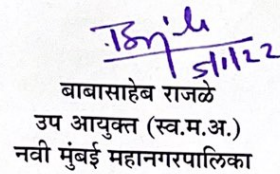 5/1/22
बाबासाहेब राजळे
उप आयुक्त (स्व.म.अ.)
नवी मुंबई महानगरपालिका